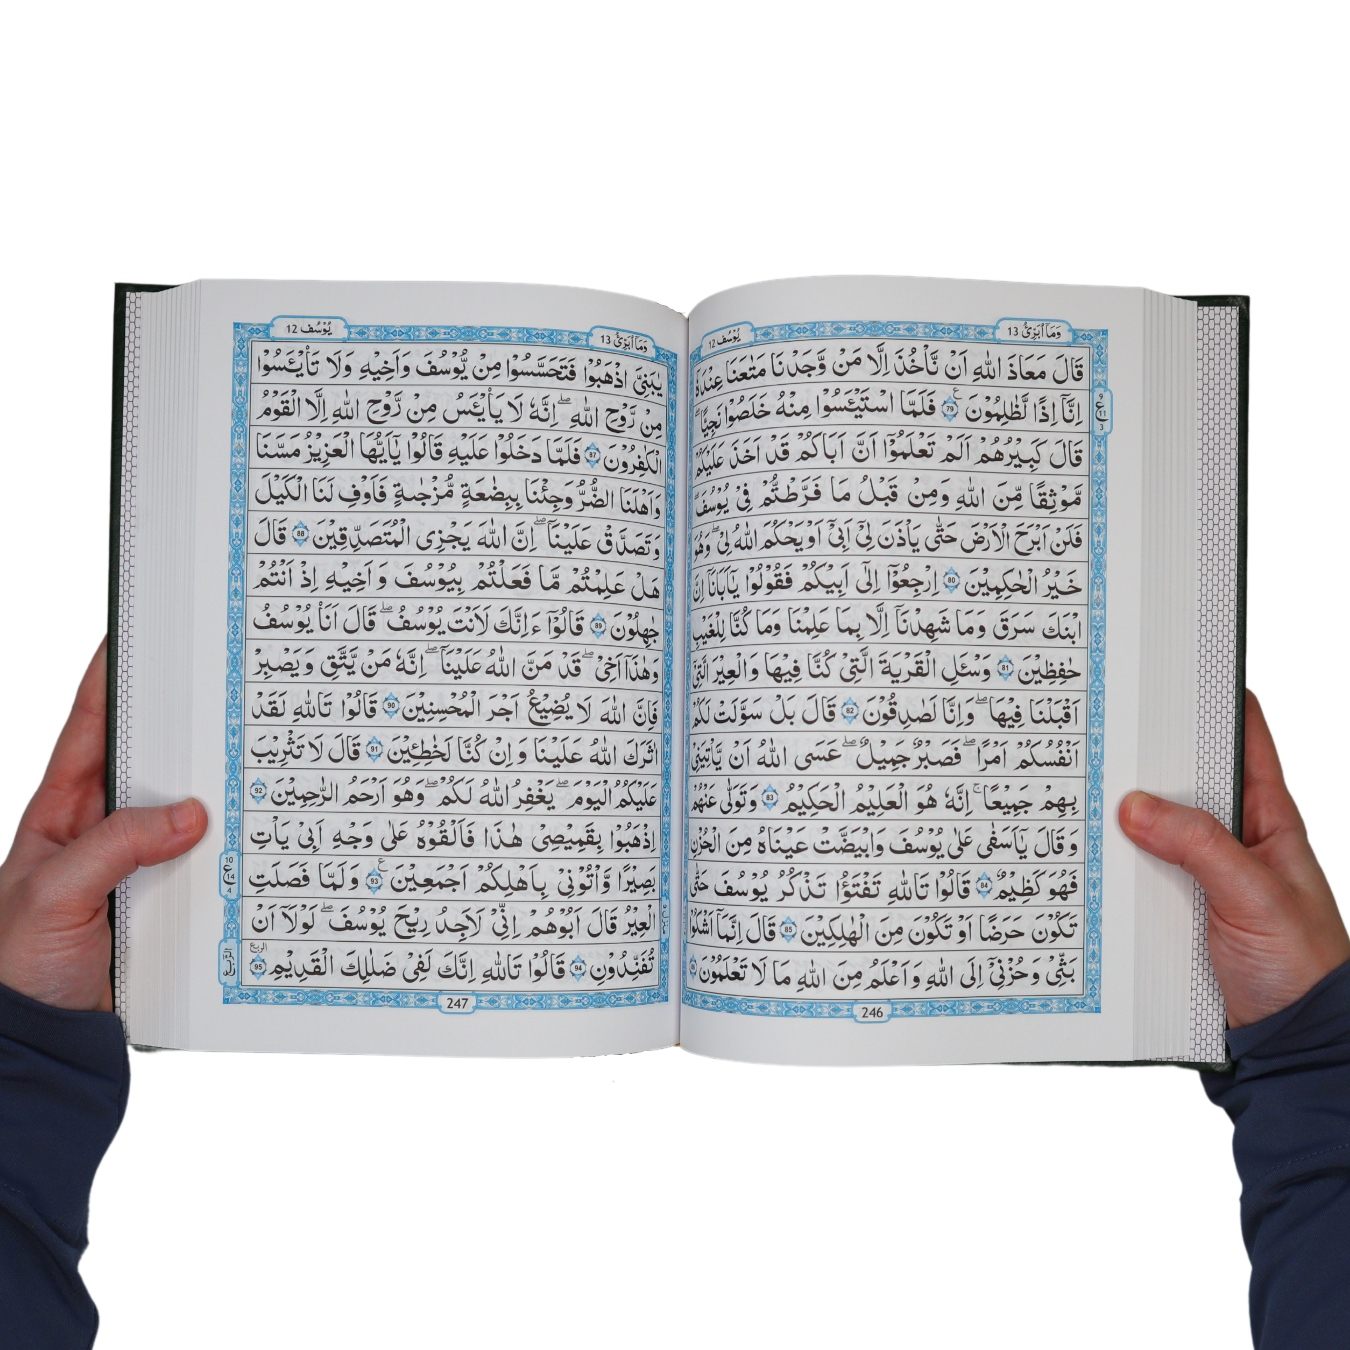 وَمَاۤ اُبَرِّئُ 13
يُوْسُف 12
قَالَ مَعَاذَ اللّٰهِ اَنْ نَّاْخُذَ اِلَّا مَنْ وَّجَدْنَا مَتَاعَنَا عِنْدَهٗۤ
اِنَّاۤ اِذًا لَّظٰلِمُوْنَ ࣖ 79 فَلَمَّا اسْتَيْـَٔسُوْا مِنْهُ خَلَصُوْا نَجِيًّا ؕ
قَالَ كَبِيْرُهُمْ اَلَمْ تَعْلَمُوْۤا اَنَّ اَبَاكُمْ قَدْ اَخَذَ عَلَيْكُمْ
مَّوْثِقًا مِّنَ اللّٰهِ وَمِنْ قَبْلُ مَا فَرَّطْتُّمْ فِيْ يُوْسُفَ ۚ
فَلَنْ اَبْرَحَ الْاَرْضَ حَتّٰى يَاْذَنَ لِيْۤ اَبِيْۤ اَوْ يَحْكُمَ اللّٰهُ لِيْ ۖ وَهُوَ
خَيْرُ الْحٰكِمِيْنَ 80 اِرْجِعُوْۤا اِلٰۤى اَبِيْكُمْ فَقُوْلُوْا يٰۤاَبَانَاۤ اِنَّ
ابْنَكَ سَرَقَ وَمَا شَهِدْنَاۤ اِلَّا بِمَا عَلِمْنَا وَمَا كُنَّا لِلْغَيْبِ
حٰفِظِيْنَ 81 وَسْـَٔلِ الْقَرْيَةَ الَّتِيْ كُنَّا فِيْهَا وَالْعِيْرَ الَّتِيْۤ
اَقْبَلْنَا فِيْهَا ۖ وَاِنَّا لَصٰدِقُوْنَ 82 قَالَ بَلْ سَوَّلَتْ لَكُمْ
اَنْفُسُكُمْ اَمْرًا ۖ فَصَبْرٌ جَمِيْلٌ ۖ عَسَى اللّٰهُ اَنْ يَّاْتِيَنِيْ
بِهِمْ جَمِيْعًا ۚ اِنَّهٗ هُوَ الْعَلِيْمُ الْحَكِيْمُ 83 وَتَوَلّٰى عَنْهُمْ
وَقَالَ يٰۤاَسَفٰى عَلٰى يُوْسُفَ وَابْيَضَّتْ عَيْنَاهُ مِنَ الْحُزْنِ
فَهُوَ كَظِيْمٌ 84 قَالُوْا تَاللّٰهِ تَفْتَؤُا تَذْكُرُ يُوْسُفَ حَتّٰى
تَكُوْنَ حَرَضًا اَوْ تَكُوْنَ مِنَ الْهٰلِكِيْنَ 85 قَالَ اِنَّمَاۤ اَشْكُوْا
بَثِّيْ وَحُزْنِيْۤ اِلَى اللّٰهِ وَاَعْلَمُ مِنَ اللّٰهِ مَا لَا تَعْلَمُوْنَ
9
ع
11
3
246
وَمَاۤ اُبَرِّئُ 13
يُوْسُف 12
يٰبَنِيَّ اذْهَبُوْا فَتَحَسَّسُوْا مِنْ يُّوْسُفَ وَاَخِيْهِ وَلَا تَا۟يْـَٔسُوْا
مِنْ رَّوْحِ اللّٰهِ ۖ اِنَّهٗ لَا يَا۟يْـَٔسُ مِنْ رَّوْحِ اللّٰهِ اِلَّا الْقَوْمُ
الْكٰفِرُوْنَ 87 فَلَمَّا دَخَلُوْا عَلَيْهِ قَالُوْا يٰۤاَيُّهَا الْعَزِيْزُ مَسَّنَا
وَاَهْلَنَا الضُّرُّ وَجِئْنَا بِبِضَاعَةٍ مُّزْجٰىةٍ فَاَوْفِ لَنَا الْكَيْلَ
وَتَصَدَّقْ عَلَيْنَا ۖ اِنَّ اللّٰهَ يَجْزِى الْمُتَصَدِّقِيْنَ 88 قَالَ
هَلْ عَلِمْتُمْ مَّا فَعَلْتُمْ بِيُوْسُفَ وَاَخِيْهِ اِذْ اَنْتُمْ
جٰهِلُوْنَ 89 قَالُوْۤا ءَاِنَّكَ لَاَنْتَ يُوْسُفُ ۖ قَالَ اَنَا يُوْسُفُ
وَهٰذَاۤ اَخِيْ ۖ قَدْ مَنَّ اللّٰهُ عَلَيْنَا ۖ اِنَّهٗ مَنْ يَّتَّقِ وَيَصْبِرْ
فَاِنَّ اللّٰهَ لَا يُضِيْعُ اَجْرَ الْمُحْسِنِيْنَ 90 قَالُوْا تَاللّٰهِ لَقَدْ
اٰثَرَكَ اللّٰهُ عَلَيْنَا وَاِنْ كُنَّا لَخٰطِـِٕيْنَ 91 قَالَ لَا تَثْرِيْبَ
عَلَيْكُمُ الْيَوْمَ ۖ يَغْفِرُ اللّٰهُ لَكُمْ ۖ وَهُوَ اَرْحَمُ الرّٰحِمِيْنَ 92
اِذْهَبُوْا بِقَمِيْصِيْ هٰذَا فَاَلْقُوْهُ عَلٰى وَجْهِ اَبِيْ يَاْتِ
بَصِيْرًا وَّاْتُوْنِيْ بِاَهْلِكُمْ اَجْمَعِيْنَ ࣖ 93 وَلَمَّا فَصَلَتِ
الْعِيْرُ قَالَ اَبُوْهُمْ اِنِّيْ لَاَجِدُ رِيْحَ يُوْسُفَ ۖ لَوْلَاۤ اَنْ
تُفَنِّدُوْنِ 94 قَالُوْا تَاللّٰهِ اِنَّكَ لَفِيْ ضَلٰلِكَ الْقَدِيْمِ 95
10
ع
14
4
الربع
247